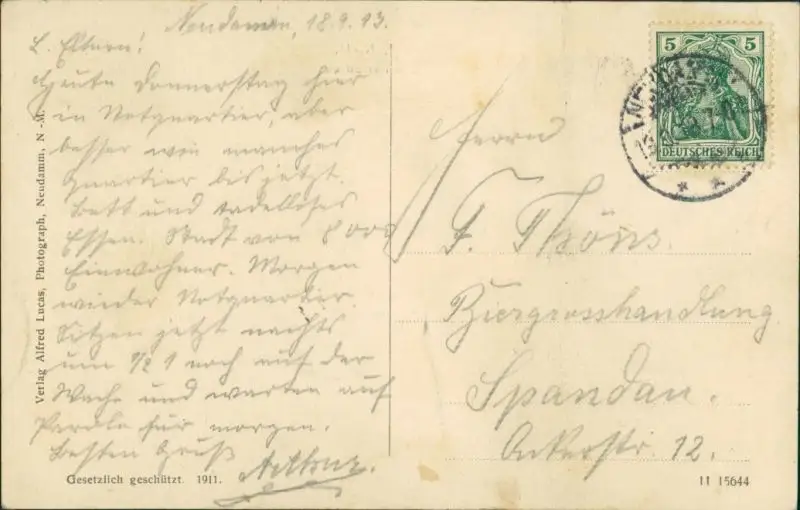 Neudamm, 18.9.13.
L. Eltern!
Heute Donnerstag hier
in Notquartier, aber
besser wie manches
Quartier bis jetzt.
Bett und tadelloses
Essen. Stadt von 8000
Einwohner. Morgen
wieder Notquartier.
Sitzen jetzt nachts
um 1/2 1 noch auf der
Wache und warten auf
Parole für morgen.
Besten Gruß
Arthur.
Herrn
F. Thöns.
Biergrosshandlung
Spandau.
Ankerstr. 12.
5 5
DEUTSCHES REICH
NEUDAMM
Verlag Alfred Lucas, Photograph, Neudamm, N.-M.
Gesetzlich geschützt. 1911.
11 15644